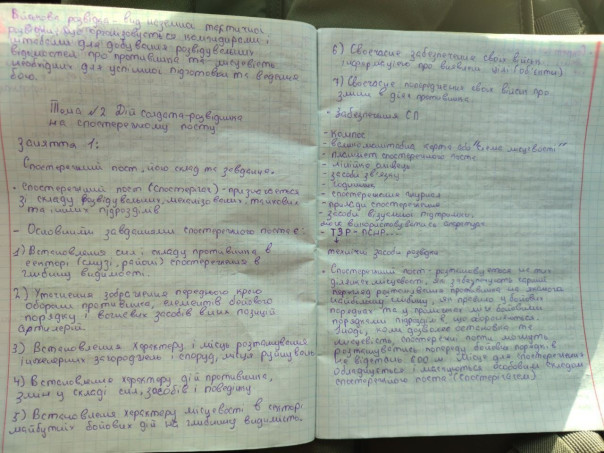 Військова розвідка - вид наземної тактичної
розвідки, що організовується командирами і
штабами для добування розвідувальних
відомостей про противника та місцевість
необхідних для успішної підготовки та ведення
бою.
Тема №2 Дії солдата-розвідника
на спостережному посту
Заняття 1:
Спостережний пост, його склад та завдання.
- спостережний пост (спостерігач) - призначається
зі складу розвідувальних, механізованих, танкових
та інших підрозділів
- Основними завданнями спостережного поста є:
1) Встановлення сил і складу противника в
секторі (смузі, районі) спостереження в
глибину видимості.
2) Уточнення зображення переднього краю
оборони противника, елементів бойового
порядку і вогневих засобів вник позицій
артилерії.
3) Встановлення характеру і місць розташування
інженерних загороджень і споруд, місць руйнувань
4) Встановлення характеру дій противника,
змін у складі сил, засобів і поведінці
5) Встановлення характеру місцевості в секторі
майбутніх бойових дій на глибину видимість.
6) Своєчасне забезпечення своїх військ
інформацією про виявлені цілі (об'єкти)
7) Своєчасне попередження своїх військ про
зміни в діях противника
- Забезпечення СП
- компас
- великомасштабна карта або "схема місцевості"
- планшет спостережного поста
- засоби зв'язку
- годинник
- спостереження журнал
- прилади спостереження
- засоби візуальної підтримки,
- ТЗР - ПСНР...
технічні засоби розвідки
- Спостережний пост - розташовується на тих
ділянках місцевості, які забезпечують гарний
перегляд розташування противника на якомога
найбільшу глибину, як правило у бойових
порядках та у проміжках між бойовими
порядками підрозділів, що обороняються
Іноді, коли дозволяє обстановка та
місцевість, спостережні пости можуть
розташовуватись попереду бойових порядків
на відстань 600 м Місце для спостереження
обладнується і маскується особовим складом
спостережного поста (спостерігачем)